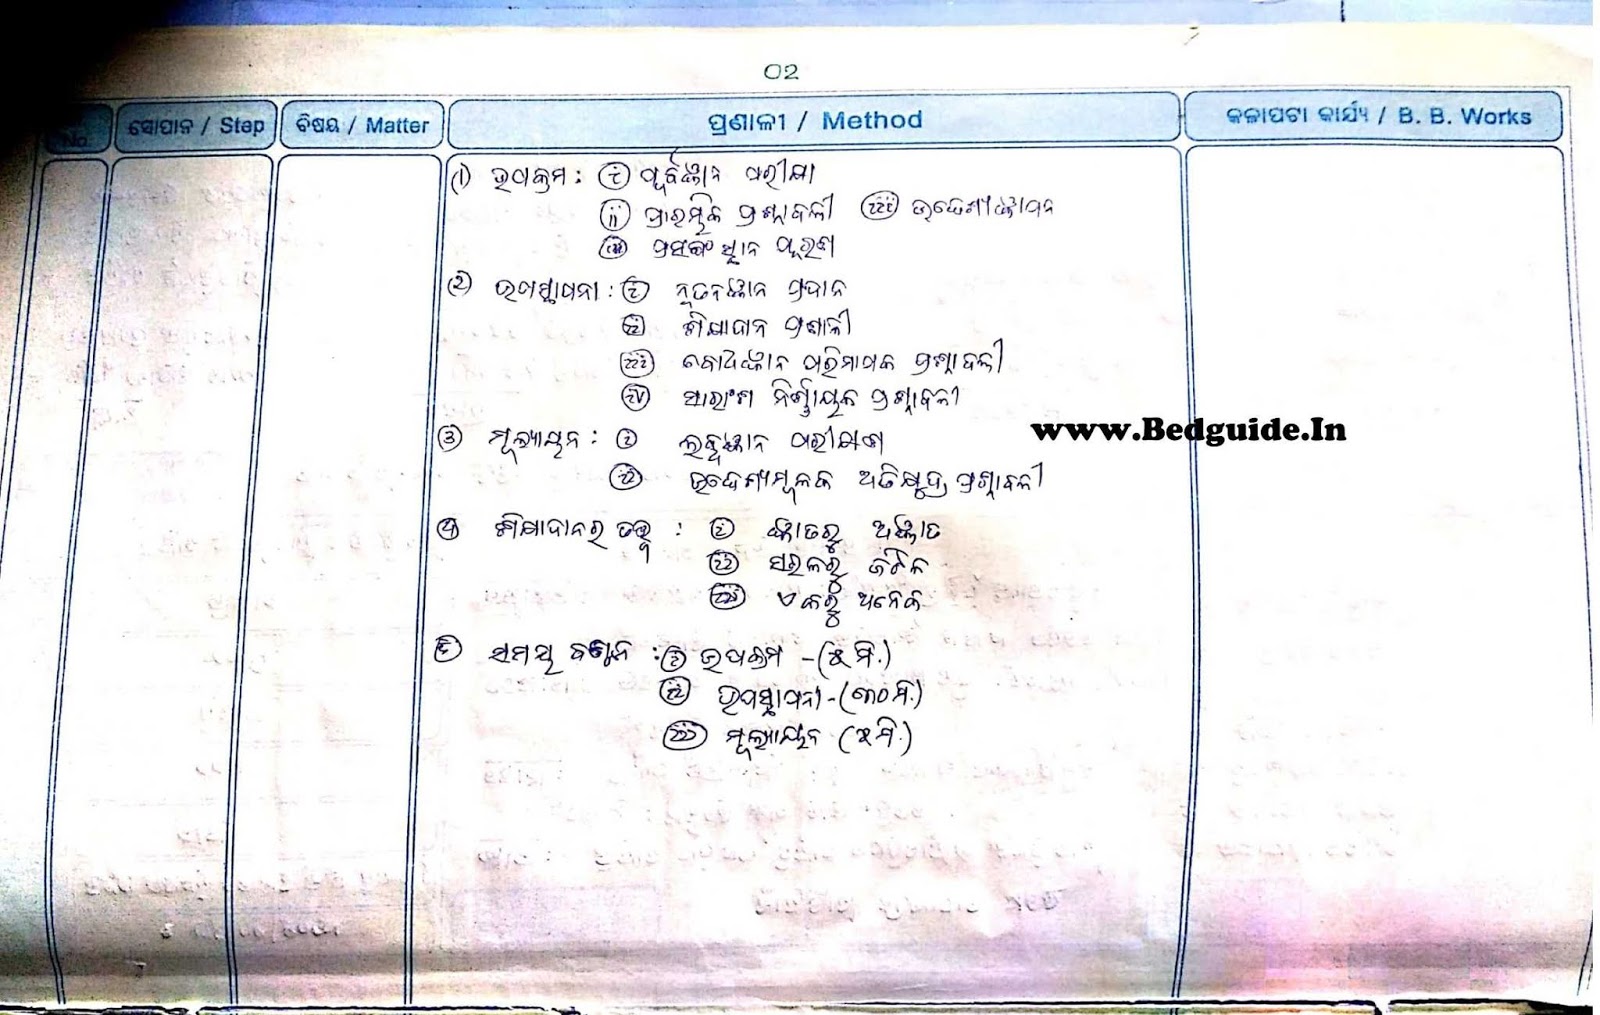 02
No.
ସୋପାନ / Step
ବିଷୟ / Matter
ପ୍ରଣାଳୀ / Method
କଳାପଟା କାର୍ଯ୍ୟ / B. B. Works
(୧) ଉପକ୍ରମ : (i) ପୂର୍ବଜ୍ଞାନ ପରୀକ୍ଷା
(ii) ପ୍ରାରମ୍ଭିକ ପ୍ରଶ୍ନାବଳୀ (iii) ଉଦ୍ଦେଶ୍ୟଜ୍ଞାପନ
ପ୍ରସଙ୍ଗ ସ୍ଥାନ ପୂରଣ
(୨) ଉପସ୍ଥାପନା : (i) ନୂତନଜ୍ଞାନ ପ୍ରଦାନ
(ii) ଶିକ୍ଷାଦାନ ପ୍ରଣାଳୀ
(iii) ବୋଧଜ୍ଞାନ ପରିମାପକ ପ୍ରଶ୍ନାବଳୀ
(iv) ସାରାଂଶ ନିର୍ଣ୍ଣାୟକ ପ୍ରଶ୍ନାବଳୀ
(୩) ମୂଲ୍ୟାୟନ : (i) ଲବ୍ଧଜ୍ଞାନ ପରୀକ୍ଷଣ
(ii) ଉଦ୍ଦେଶ୍ୟମୂଳକ ଅତିକ୍ଷୁଦ୍ର ପ୍ରଶ୍ନାବଳୀ
www.Bedguide.In
(୪) ଶିକ୍ଷାଦାନର ତତ୍ତ୍ୱ : (i) ଜ୍ଞାତରୁ ଅଜ୍ଞାତ
(ii) ସରଳରୁ ଜଟିଳ
(iii) ଏକରୁ ଅନେକ
(୫) ସମୟ ବଣ୍ଟନ : (i) ଉପକ୍ରମ - (୫ ମି.)
(ii) ଉପସ୍ଥାପନା - (୩୦ ମି.)
(iii) ମୂଲ୍ୟାୟନ (୫ ମି.)